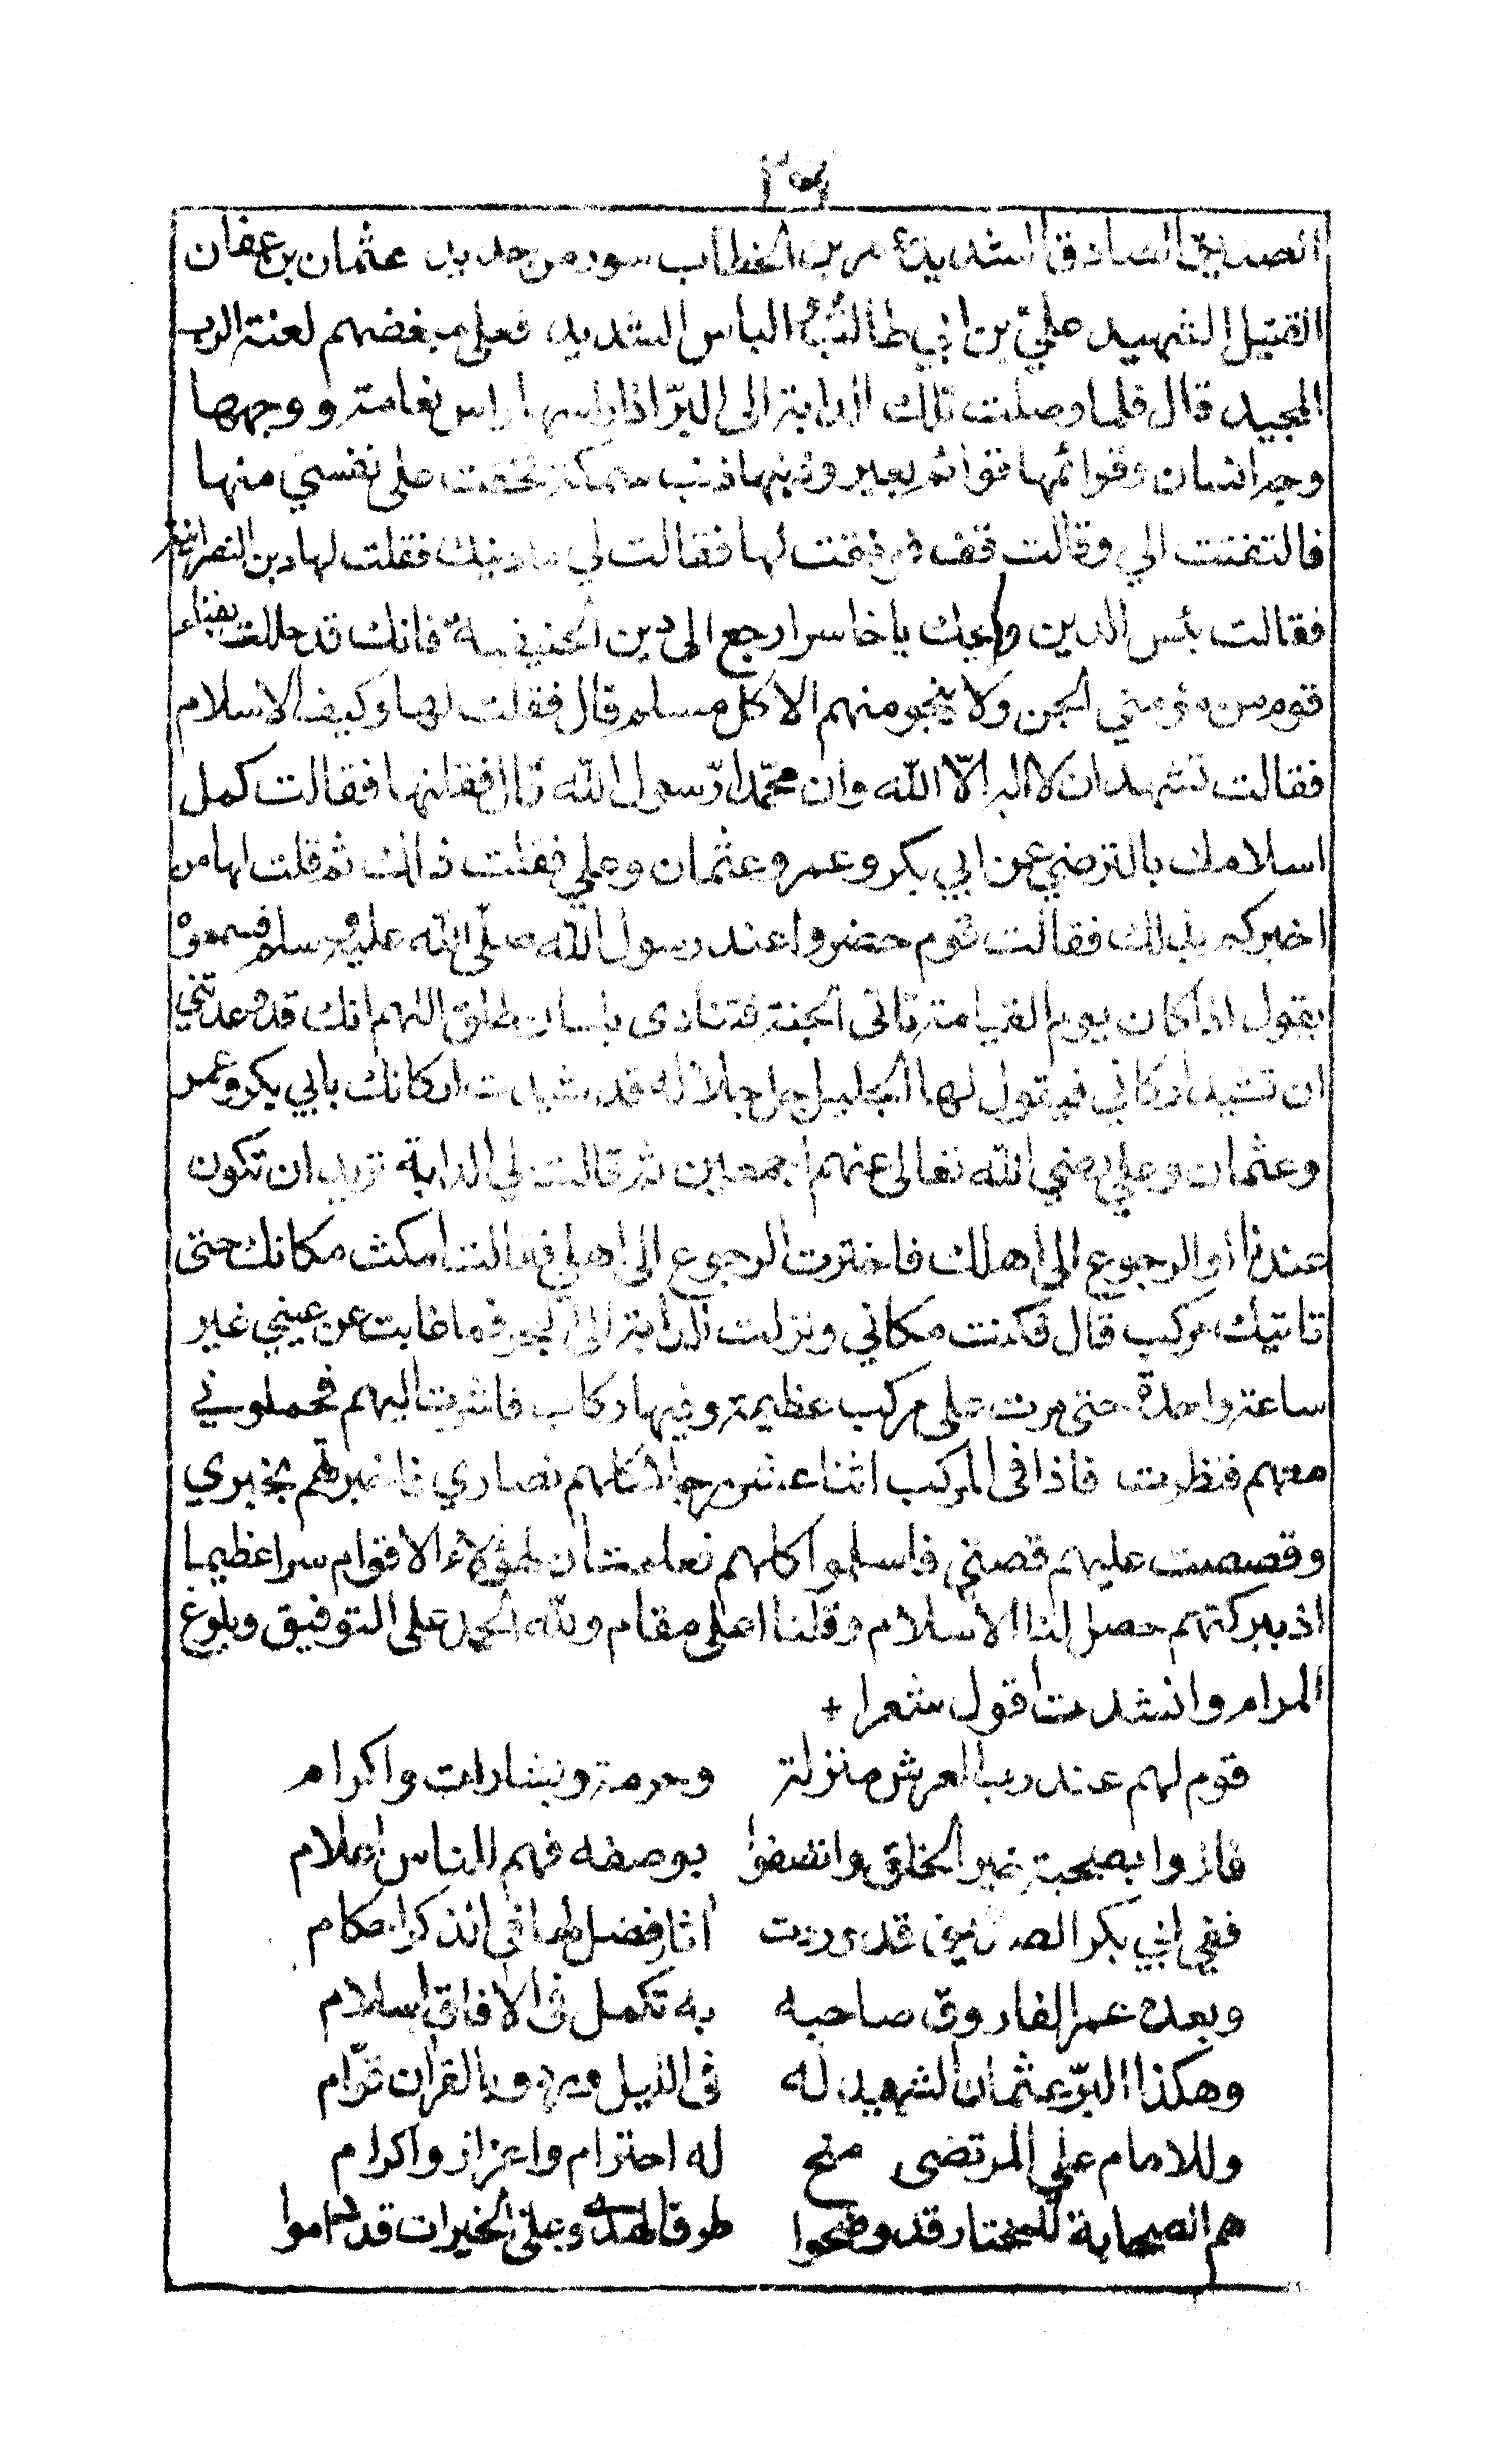 الصديق الصادق الشديد عمر بن الخطاب سور من حديد عثمان بن عفان
القتيل الشهيد علي بن ابي طالب الباس الشديد فعلى مبغضهم لعنة الرب
المجيد قال فلما وصلت تلك الدابة الى البرّ اذا راسها راس نعامة و وجهها
وجه انسان وقوائمها قوائم بعير وذنبها ذنب سمكة فخفت على نفسي منها
فالتفتت الي وقالت قف فوقفت لها فقالت لي ما دينك فقلت لها دين النصرانية
فقالت بئس الدين ويحك يا خاسر ارجع الى دين الحنيفية فانك قد حللت بفناء
قوم من مؤمني الجن ولا ينجو منهم الا كل مسلم قال فقلت لها وكيف الاسلام
فقالت تشهد ان لا اله الّا الله وان محمّدا رّسول الله قال فقلتها فقالت كمل
اسلامك بالترضي عن ابي بكر وعمر وعثمان وعلي فقلت ذالك ثم قلت لها من
اخبركم بذلك فقالت قوم حضروا عند رسول الله صلّى الله عليه وسلم فسمعوه
يقول اذا كان يوم القيامة تاتى الجنة فتنادى بلسان طلق اللهم انك قد وعدتني
ان تشيد اركاني فيقول لها الجليل جل جلاله قد شيدت اركانك بابي بكر وعمر
وعثمان وعلي رضي الله تعالى عنهم اجمعين ثم قالت لي الدابة تريد ان تكون
عندنا او الرجوع الى اهلك فاخترت الرجوع الى اهلي فقالت امكث مكانك حتى
تاتيك مركب قال فكنت مكاني ونزلت الدابة الى البحر فما غابت عن عيني غير
ساعة واحدة حتى مرت على مركب عظيمة وفيها ركاب فاشرت اليهم فحملوني
معهم فنظرت فاذا فى المركب اثنا عشر رجلا كلهم نصاري فاخبرتهم بخبري
وقصصت عليهم قصتي فاسلموا كلهم فعلمت ان لهؤلاء الاقوام سرا عظيما
اذ ببركتهم حصل لنا الاسلام وقلنا اعلى مقام ولله الحمد على التوفيق وبلوغ
المرام وانشدت اقول شعرا +
قوم لهم عند رب العرش منزلة وحرمة وبشارات واكرام
فازوا بصحبة خير الخلق واتصفوا بوصفه فهم للناس اعلام
ففي ابي بكر الصديق قد وردت اثار فضل لها فى الذكر احكام
وبعده عمر الفاروق صاحبه به تكمل فى الافاق اسلام
وهكذا البرّ عثمان الشهيد له فى الليل ورد وبالقران قوّام
وللامام علي المرتضى منح له احترام واعزاز واكرام
هم الصحابة للمختار قد وضحوا طرق الهدى وعلى الخيرات قد داموا